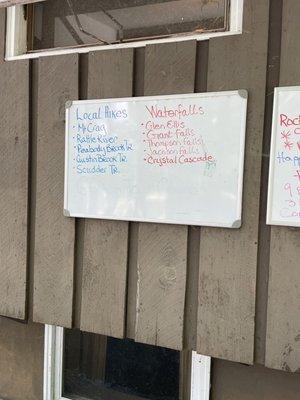 Local Hikes
• Mt Crag
• Rattle River
• Peabody Brook Tr.
• Austin Brook Tr.
• Scudder Tr.
Waterfalls
• Glen Ellis
• Giant Falls
• Thompson Falls
• Jackson Falls
• Crystal Cascade